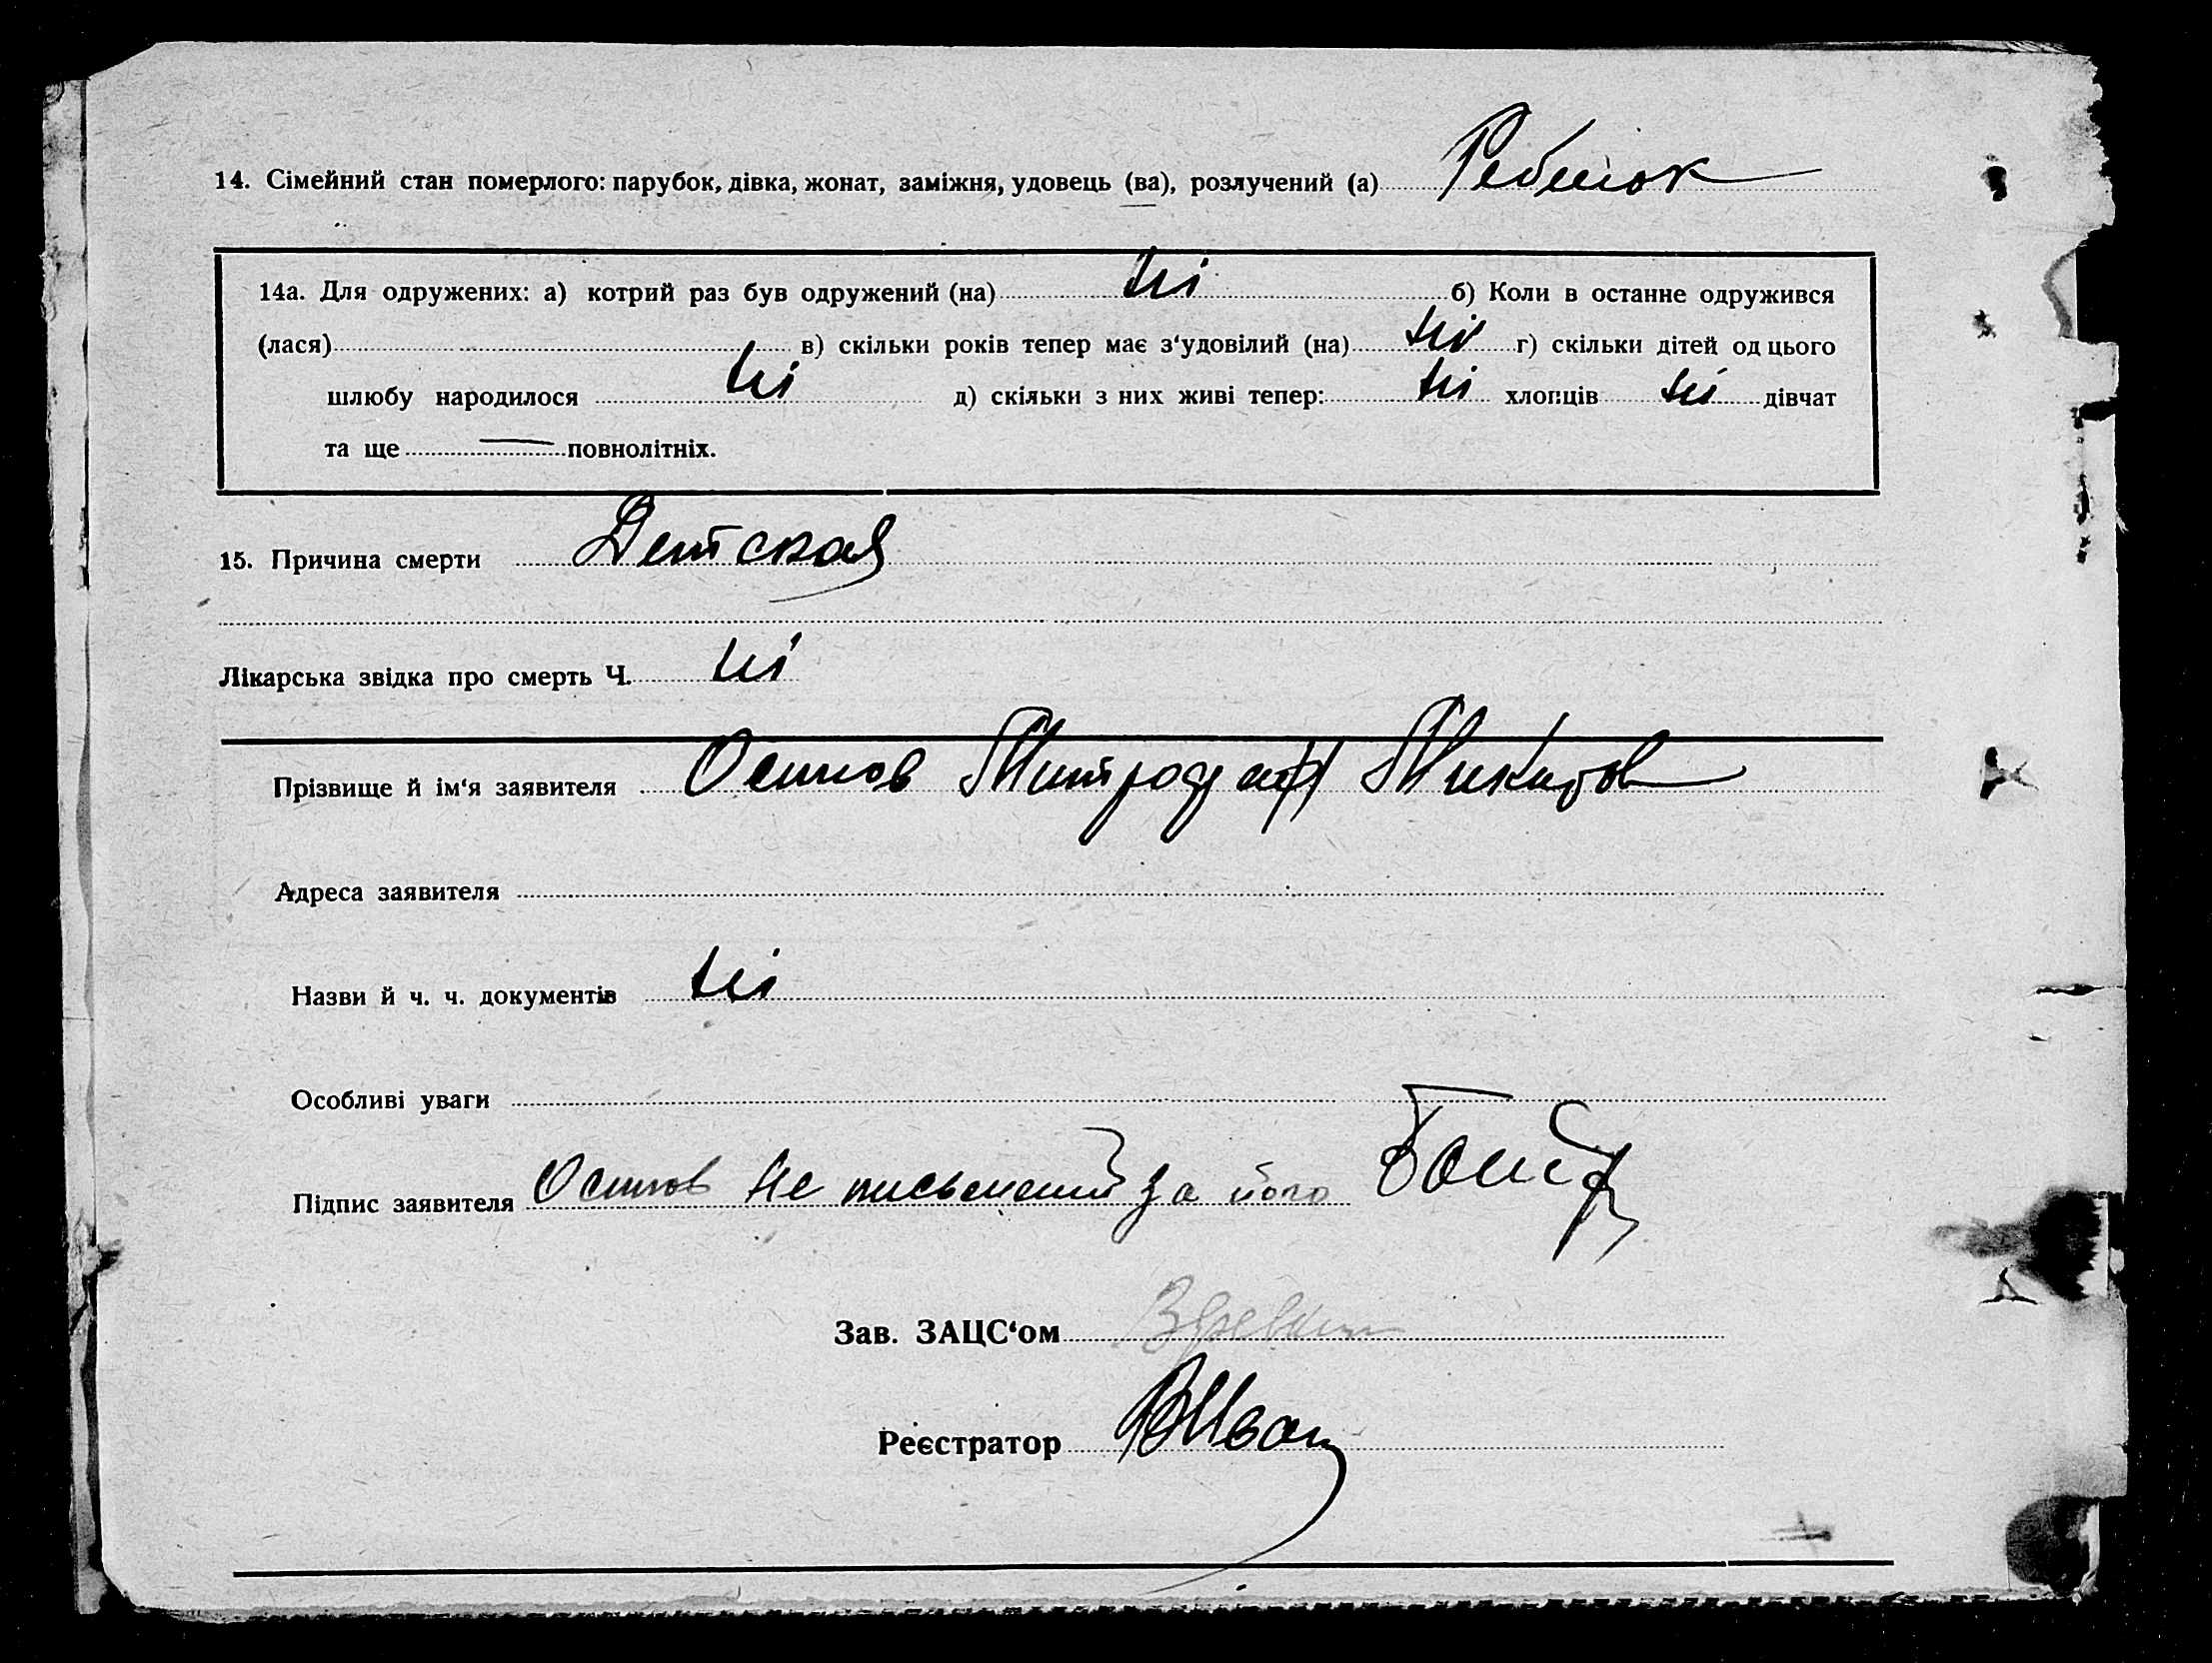 14. Сімейний стан померлого: парубок, дівка, жонат, заміжня, удовець (ва), розлучений (а) Ребенок
14а. Для одружених: а) котрий раз був одружений (на) ні б) Коли в останне одружився
(лася) в) скільки років тепер має з‘удовілий (на) ні г) скільки дітей од цього
шлюбу народилося ні д) скільки з них живі тепер: ні хлопців ні дівчат
та ще — повнолітніх.
15. Причина смерти Детская
Лікарська звідка про смерть Ч. ні
Прізвище й ім‘я заявителя Осипов
Адреса заявителя
Назви й ч. ч. документів ні
Особливі уваги
Підпис заявителя Осипов не письмений за його
Зав. ЗАЦС‘ом
Реєстратор